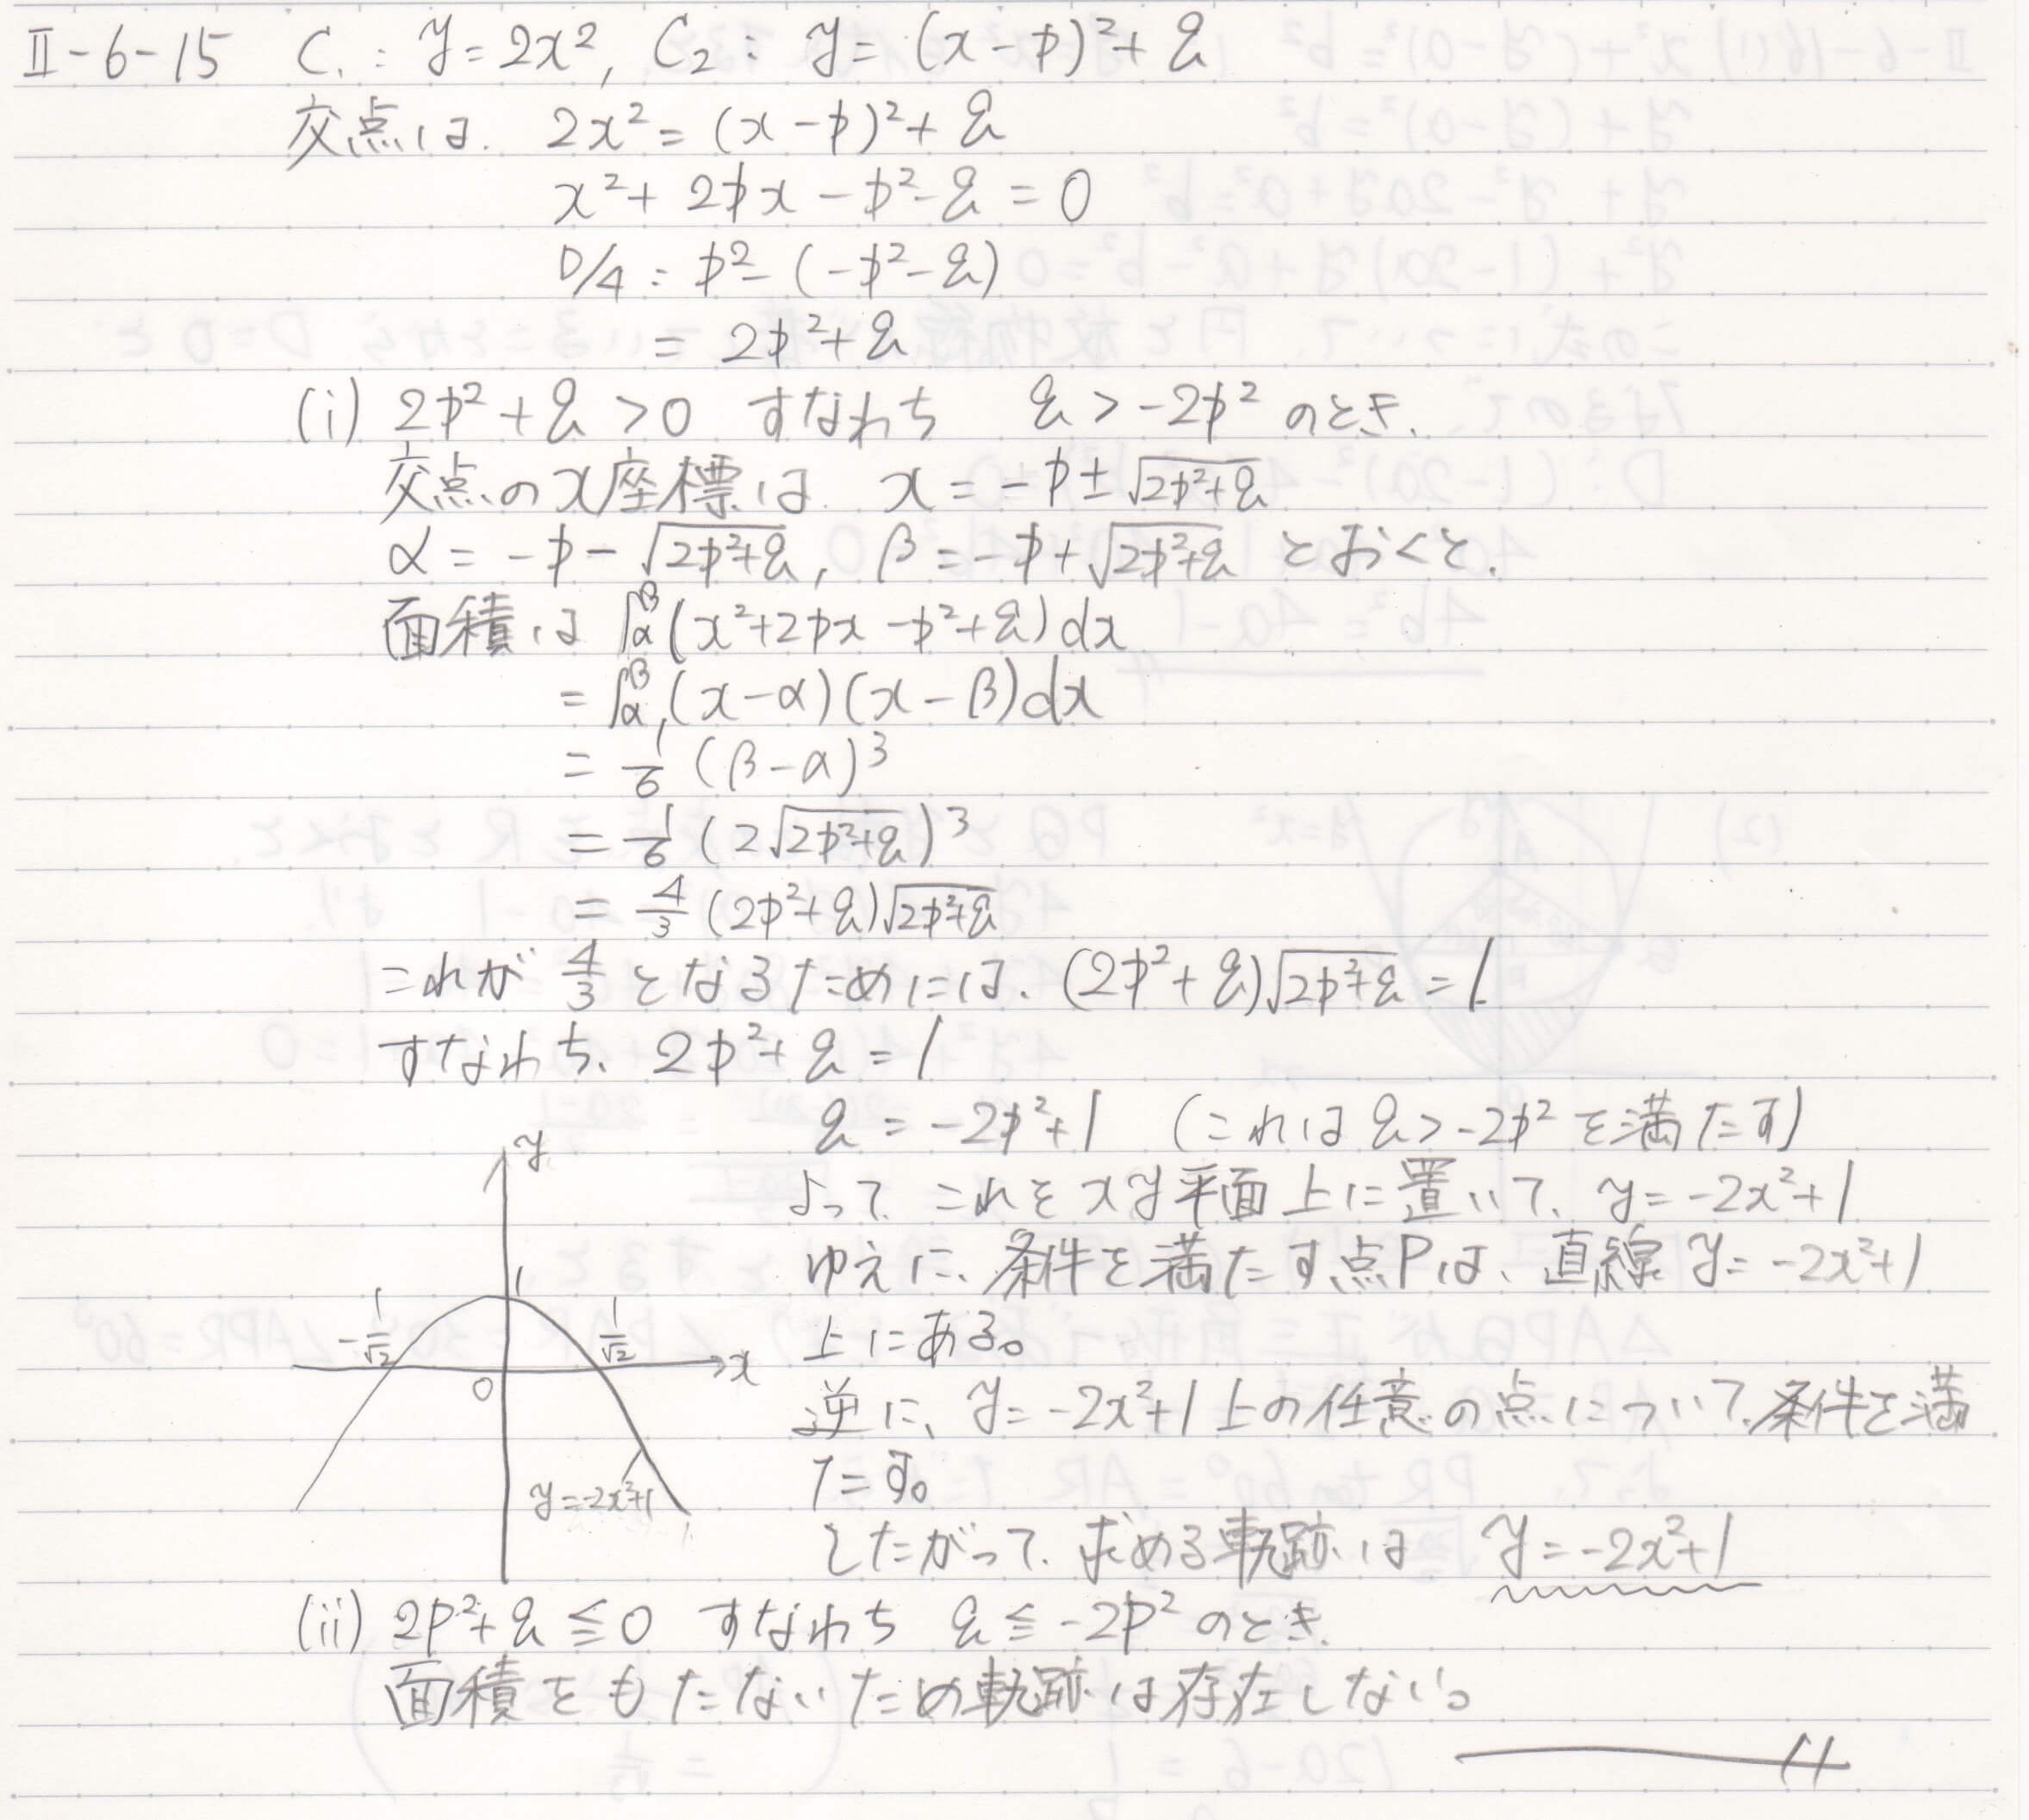 II-6-15 C₁: y=2x², C₂: y=(x-p)²+q
交点は. 2x²=(x-p)²+q
x²+2px-p²-q=0
D/4: p²-(-p²-q)
=2p²+q
(i) 2p²+q>0 すなわち q>-2p² のとき.
交点のx座標は x=-p±√(2p²+q)
α=-p-√(2p²+q), β=-p+√(2p²+q) とおくと.
面積は ∫_α^β(x²+2px-p²+q)dx
=∫_α^β(x-α)(x-β)dx
=1/6(β-α)³
=1/6(2√(2p²+q))³
=4/3(2p²+q)√(2p²+q)
これが 4/3 となるためには. (2p²+q)√(2p²+q)=1
すなわち. 2p²+q=1
q=-2p²+1 (これは q>-2p² を満たす)
よって これを xy平面上に置いて、y=-2x²+1
ゆえに、条件を満たす点Pは、直線 y=-2x²+1
上にある。
逆に、y=-2x²+1上の任意の点について、条件を満
たす。
したがって、求める軌跡は y=-2x²+1
y
1
-1/√2
1/√2
x
0
y=-2x²+1
(ii) 2p²+q≦0 すなわち q≦-2p² のとき.
面積をもたないため軌跡は存在しない。